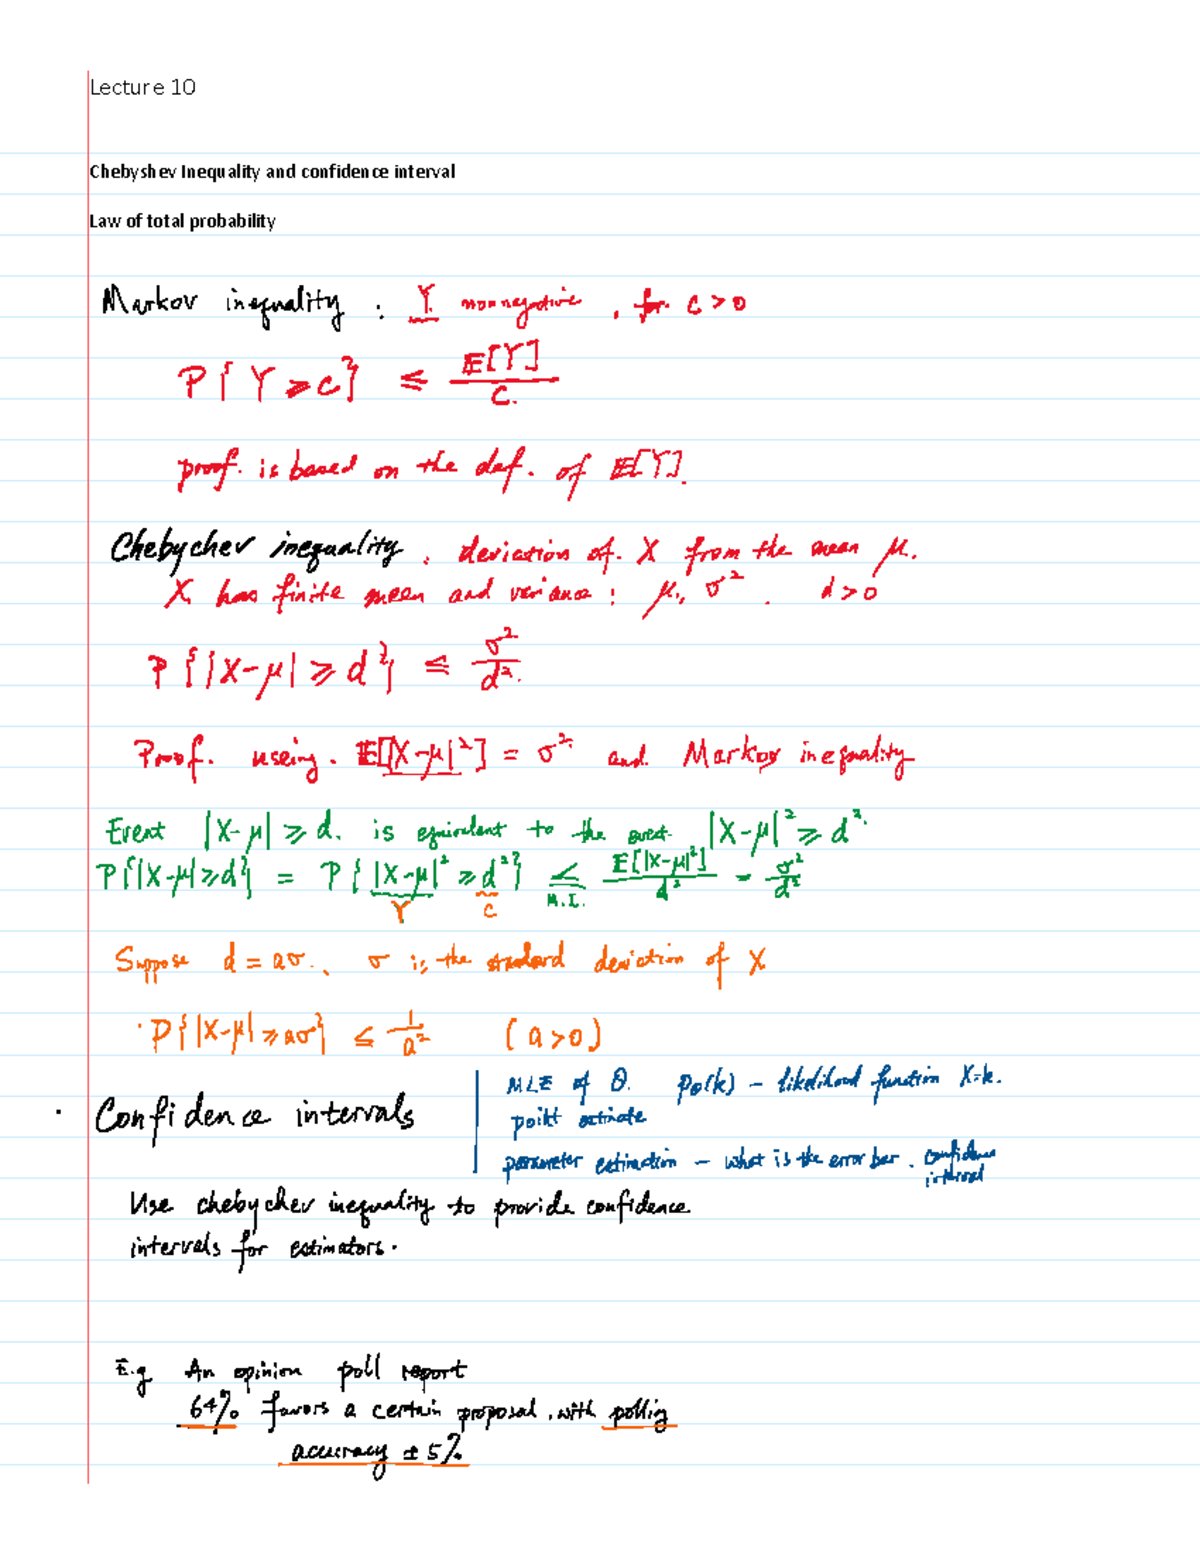 Lecture 10
Chebyshev Inequality and confidence interval
Law of total probability
Markov inequality : Y nonnegative , for c > 0
P{ Y ≥ c} ≤ E[Y] / c.
proof. is based on the def. of E[Y].
Chebychev inequality : deviation of X from the mean μ.
X has finite mean and variance : μ, σ². d > 0
P{|X-μ| ≥ d} ≤ σ² / d².
Proof. useing. E[|X-μ|²] = σ² and. Markov inequality
Event |X-μ| ≥ d. is equivalent to the event |X-μ|² ≥ d².
P{|X-μ| ≥ d} = P{ |X-μ|² ≥ d²} ≤ E[|X-μ|²] / d² = σ² / d²
Y c M.I.
Suppose d = aσ., σ is the standard deviation of X
P{|X-μ| ≥ aσ} ≤ 1 / a² (a > 0)
MLE of θ. pθ(k) – likelihood function X=k.
point estimate
· Confidence intervals
parameter estimation – what is the error bar. confidence
interval
Use chebychev inequality to provide confidence
intervals for estimators.
E.g An opinion poll report
64% favors a certain proposal, with pollig
accuracy ± 5%